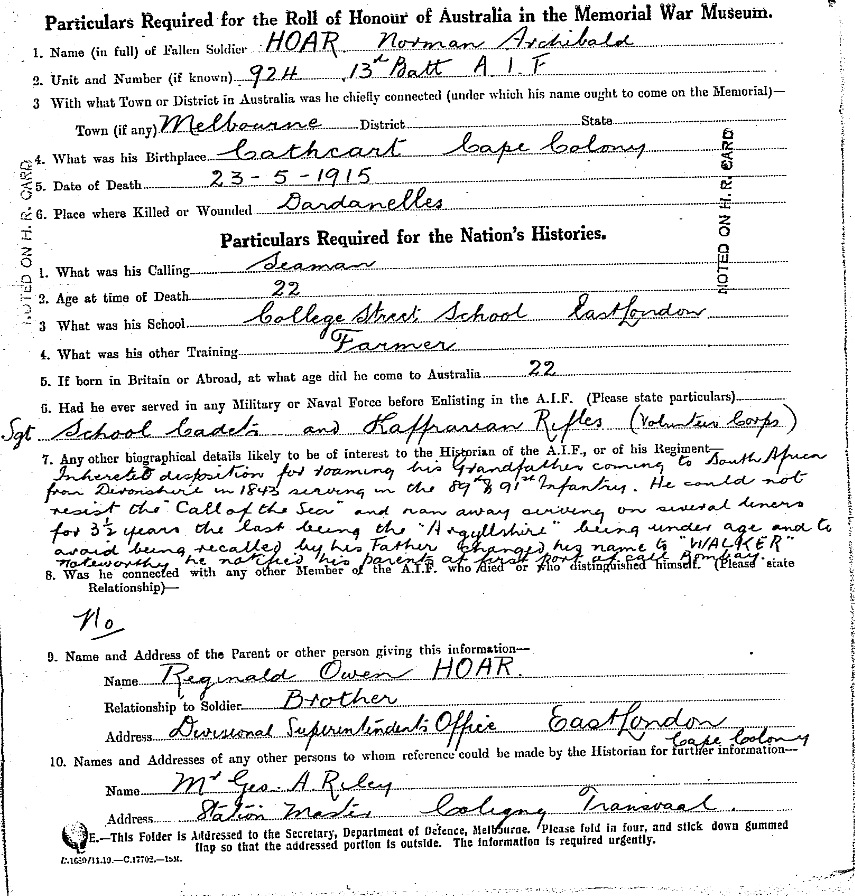 Particulars Required for the Roll of Honour of Australia in the Memorial War Museum.
1. Name (in full) of Fallen Soldier HOAR Norman Archibald
2. Unit and Number (if known) 924 13th Batt A.I.F
3 With what Town or District in Australia was he chiefly connected (under which his name ought to come on the Memorial)—
Town (if any) Melbourne District State
4. What was his Birthplace Cathcart Cape Colony
5. Date of Death 23-5-1915
6. Place where Killed or Wounded Dardanelles
NOTED ON H. R. CARD
NOTED ON H. R. CARD
Particulars Required for the Nation's Histories.
1. What was his Calling Seaman
2. Age at time of Death 22
3 What was his School College Street School East London
4. What was his other Training Farmer
5. If born in Britain or Abroad, at what age did he come to Australia 22
6. Had he ever served in any Military or Naval Force before Enlisting in the A.I.F. (Please state particulars)
Sgt School Cadets and Kaffrarian Rifles (Volunteer Corps)
7. Any other biographical details likely to be of interest to the Historian of the A.I.F., or of his Regiment—
Inhereted disposition for roaming his Grandfather coming to South Africa
from Devonshire in 1843 serving in the 89th & 91st Infantry. He could not
resist the "Call of the Sea" and ran away serving on several liners
for 3½ years the last being the "Argyllshire" being under age and to
avoid being recalled by his Father changed his name to "WALKER"
Noteworthy he notified his parents at first port of call Bombay.
8. Was he connected with any other Member of the A.I.F. who died or who distinguished himself. (Please state
Relationship)—
No
9. Name and Address of the Parent or other person giving this information—
Name Reginald Owen HOAR.
Relationship to Soldier Brother
Address Divisional Superintendents Office East London
Cape Colony
10. Names and Addresses of any other persons to whom reference could be made by the Historian for further information—
Name Mr Geo. A Riley
Address Station Master Coligny Transvaal.
E.—This Folder is Addressed to the Secretary, Department of Defence, Melbourne. Please fold in four, and stick down gummed
flap so that the addressed portion is outside. The information is required urgently.
C.1639/11.19.—C.17702.—15M.